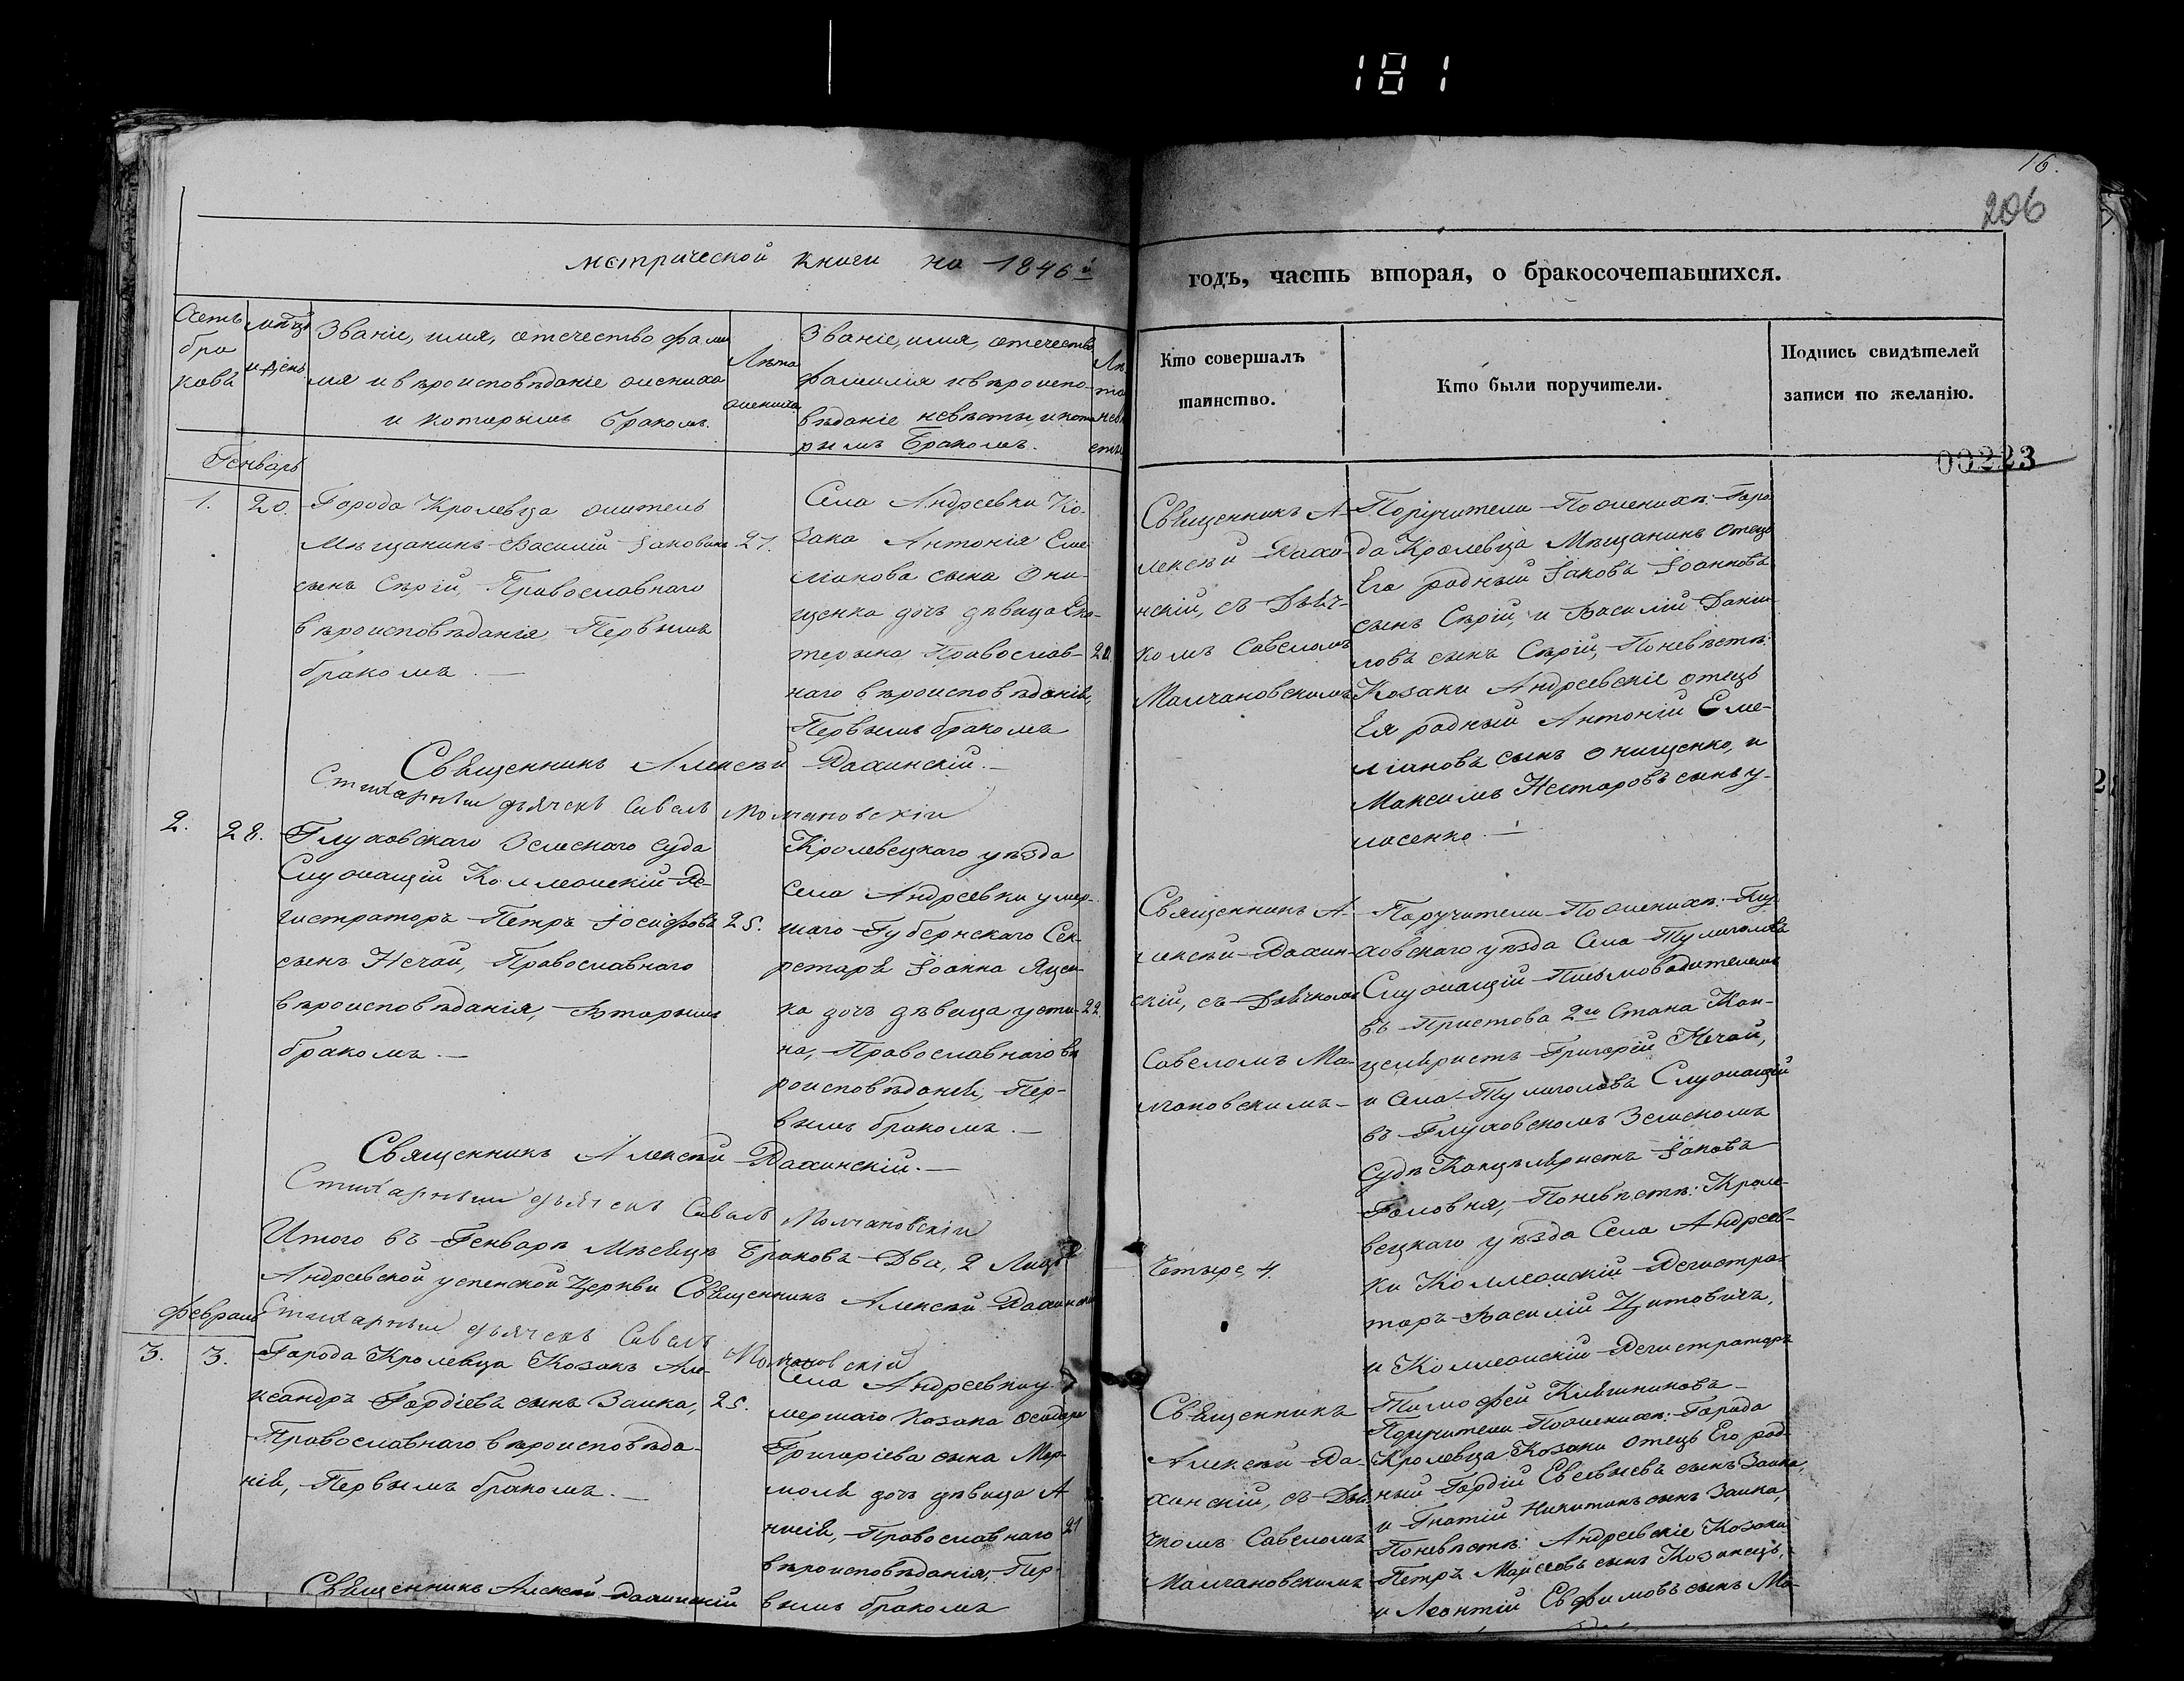 181
16.
206
метрической книги на 1846й
годъ, часть вторая, о бракосочетавшихся.
Счетъ
бра
ковъ
мѣцъ
и день
Званіе, имя, отечество фами
лія и вѣроисповѣданіе жениха
и которымъ бракомъ.
Лѣта
жениха
Званіе, имя, отечество
фамилія и вѣроиспо-
вѣданіе невѣсты и кото
рымъ бракомъ.
Лѣ
та
невѣ
сты
Кто совершалъ
таинство.
Кто были поручители.
Подпись свидѣтелей
записи по желанію.
00223
Генварь
1.
20.
Города Кролевца житель
Мѣщанинъ Василій Іаковъ
сынъ Сѣрій, Православнаго
вѣроисповѣданія Первымъ
бракомъ. —
21.
Села Андреевки Ко-
зака Антонія Еме-
ліанова сына Они-
щенка дочь дѣвица Ека-
терина Православ-
наго вѣроисповѣданія,
Первымъ бракомъ
20
Священникъ А-
лексѣй Дахи-
нскій, съ Дьяч-
комъ Савеломъ
Малчановскимъ
Поручители По женихѣ: Горо-
да Кролевца Мѣщанинъ отецъ
Его родный Іаковъ Іоанновъ
сынъ Сѣрій, и Василій Дани-
ловъ сынъ Сѣрій, По невѣстѣ:
Козаки Андреевскіе отецъ
Ея родный Антоній Еме-
ліановъ сынъ Онищенко, и
Максимъ Несторовъ сынъ у-
ласенко. —
Священникъ Алексѣй Дахинскій. —
Стихарный дьячекъ Савелъ Молчановскій
2.
28.
Глуховскаго Земскаго суда
Служащій Коллежскій Ре-
гистраторъ Петръ Іосифовъ
сынъ Нечай, Православнаго
вѣроисповѣданія, Вторымъ
бракомъ. —
25.
Кролевецкаго уѣзда
Села Андреевки умер-
шаго Губернскаго Сек-
ретаря Іоанна Яцен-
ка дочь дѣвица усти-
на, Православнаго вѣ
роисповѣданія, Пер-
вымъ бракомъ. —
22.
Священникъ А-
лексѣй Дахин-
скій, съ Дьячкомъ
Савеломъ Мо-
лчановскимъ —
Поручители По женихѣ: Глу-
ховскаго уѣзда Села Тулиголовъ
Служащій Письмоводителемъ
въ Пристова 2го Стана Кан-
целяристъ Григорій Нечай,
и Села Тулиголовъ Служащій
въ Глуховскомъ Земскомъ
Судѣ Канцеляристъ Іаковъ
Головня, По невѣстѣ: Кроле-
вецкаго уѣзда Села Андреев-
ки Коллежскій Регистра-
торъ Василій Цитовичъ,
и Коллежскій Регистраторъ
Тимофей Клешниковъ —
Священникъ Алексѣй Дахинскій. —
Стихарный дьячекъ Савелъ Молчановскій
Итого въ Генварѣ Мѣсяцѣ Браковъ Два, 2 Лицъ
Четыре, 4.
Андреевской успенской Церкви Священникъ Алексѣй Дахинскій
Стихарный дьячекъ Савелъ Молчановскій
Февраль
3.
3.
Города Кролевца Козакъ Але-
ксандръ Гордіевъ сынъ Заика,
Православнаго вѣроисповѣда-
нія, Первымъ бракомъ. —
25.
Села Андреевки у-
мершаго Козака
Григоріева сына Мар-
моля дочь дѣвица А
нисія, Православнаго
вѣроисповѣданія, Пер-
вымъ бракомъ
21
Священникъ
Алексѣй Да-
хинскій, съ Дья-
чкомъ Савеломъ
Малчановскимъ
Поручители По женихѣ: Города
Кролевца Козаки Отецъ Его род-
ный Гордій Евсевіевъ сынъ Заика,
и Гнатій Никитинъ сынъ Заика,
По невѣстѣ: Андреевскіе Козаки
Петръ Моисеовъ сынъ Козинецъ,
и Леонтій Евфимовъ сынъ Ма-
Священникъ Алексѣй Дахинскій